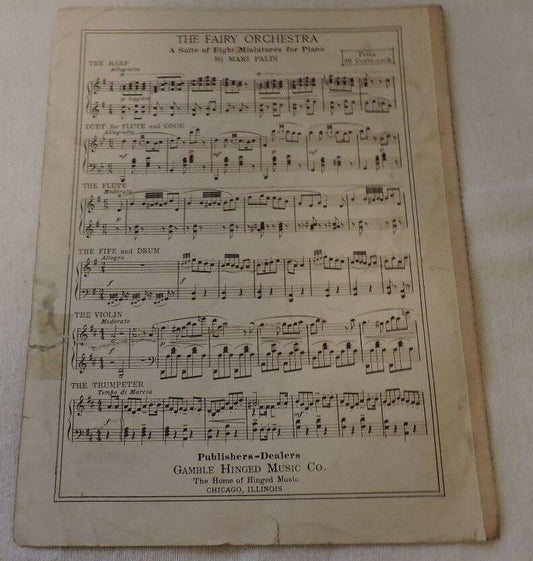 THE FAIRY ORCHESTRA
A Suite of Eight Miniatures for Piano
By MARI PALDI
Price
Cents each
THE HARP
Allegretto
DUET for FLUTE and OBOE
Allegretto
mf
p
mf
THE FLUTE
Moderato
THE FIFE and DRUM
Allegro
THE VIOLIN
Moderato
THE TRUMPETER
Tempo di Marcia
Publishers-Dealers
GAMBLE HINGED MUSIC CO.
The Home of Hinged Music
CHICAGO, ILLINOIS.